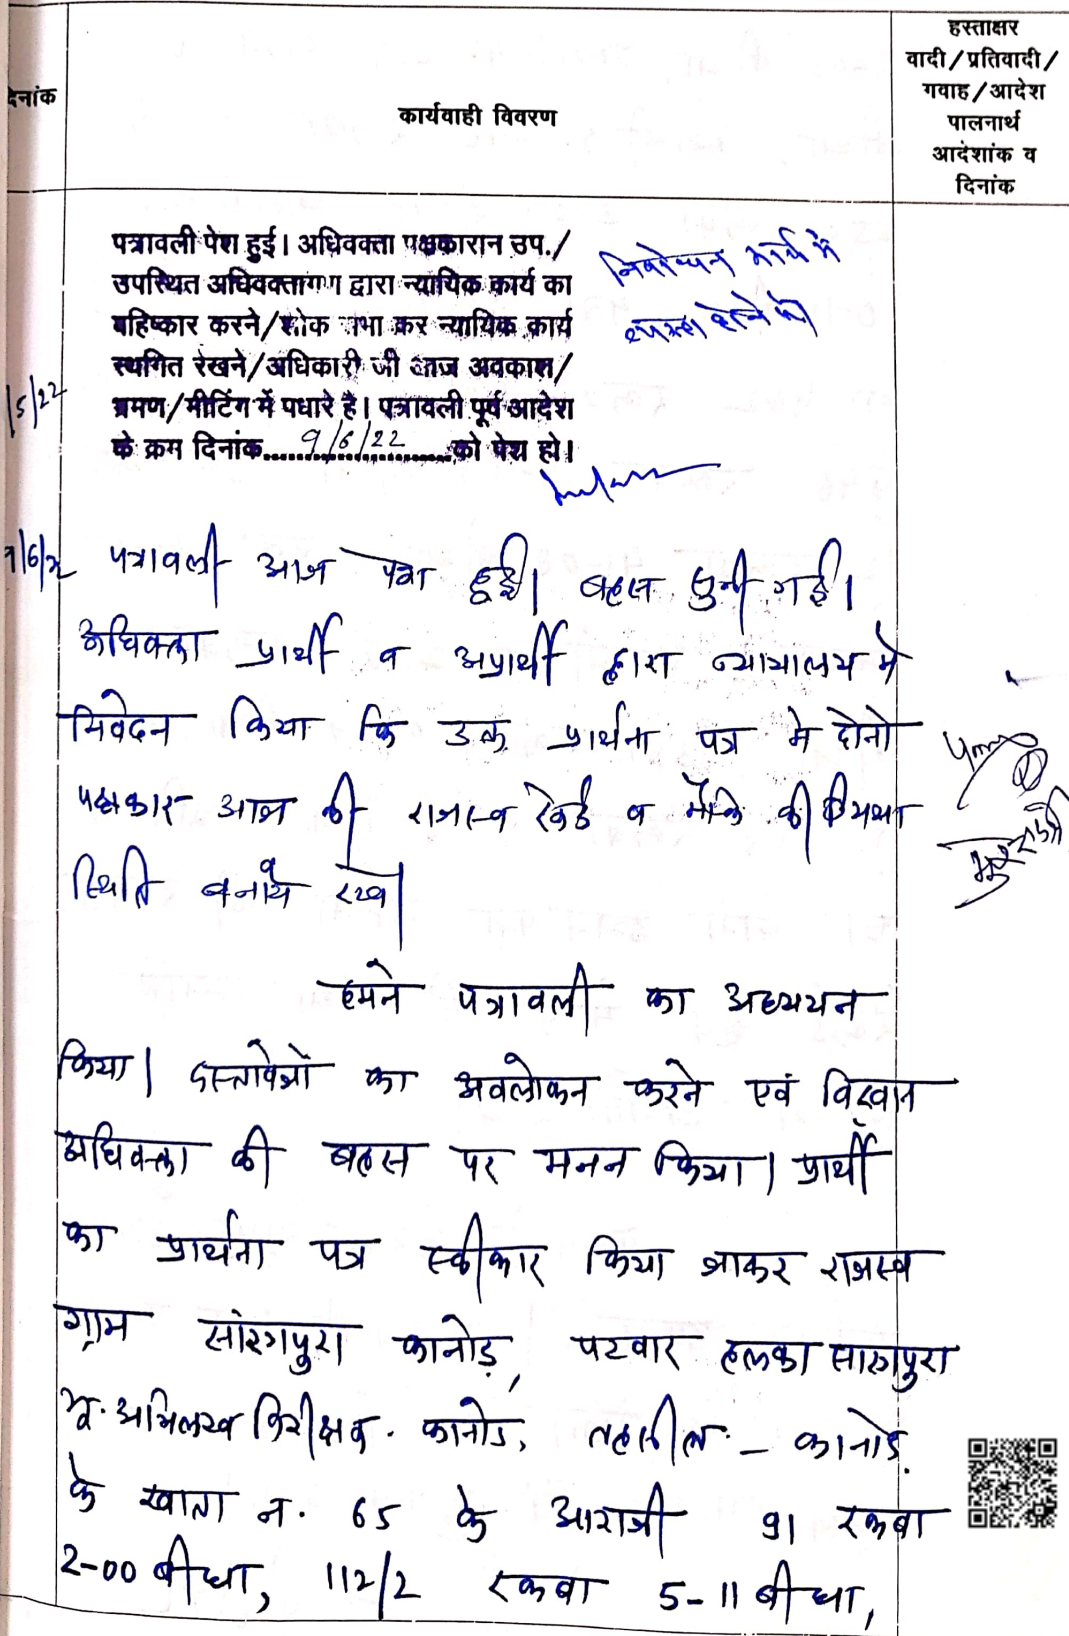 दिनांक
कार्यवाही विवरण
हस्ताक्षर
वादी/प्रतिवादी/
गवाह/आदेश
पालनार्थ
आदेशांक व
दिनांक
पत्रावली पेश हुई। अधिवक्ता पक्षकारान उप./
उपस्थित अधिवक्तागण द्वारा न्यायिक कार्य का
बहिष्कार करने/शोक सभा कर न्यायिक कार्य
स्थगित रखने/अधिकारी जी आज अवकाश/
भ्रमण/मीटिंग में पधारे है। पत्रावली पूर्व आदेश
के क्रम दिनांक.....9/6/22.....को पेश हो।
कार्य में
होने से
/5/22
9/6/22 पत्रावली आज पेश हुई। बहस सुनी गई।
अधिवक्ता प्रार्थी व अप्रार्थी द्वारा न्यायालय मे
निवेदन किया कि उक्त प्रार्थना पत्र मे दोनो
पक्षकार आज की राजस्व रेकर्ड व मौके की यथा
स्थिति बनाये रखे।
हमने पत्रावली का अध्ययन
किया। दस्तावेजों का अवलोकन करने एवं विद्वान
अधिवक्ता की बहस पर मनन किया। प्रार्थी
का प्रार्थना पत्र स्वीकार किया जाकर राजस्व
ग्राम सांरगपुरा कानोड़, पटवार हलका सारगपुरा
भू.अभिलेख निरीक्षक. कानोड, तहसील - कानोड.
के खाता न. 65 के आराजी 91 रकबा
2-00 बीघा, 112/2 रकबा 5-11 बीघा,